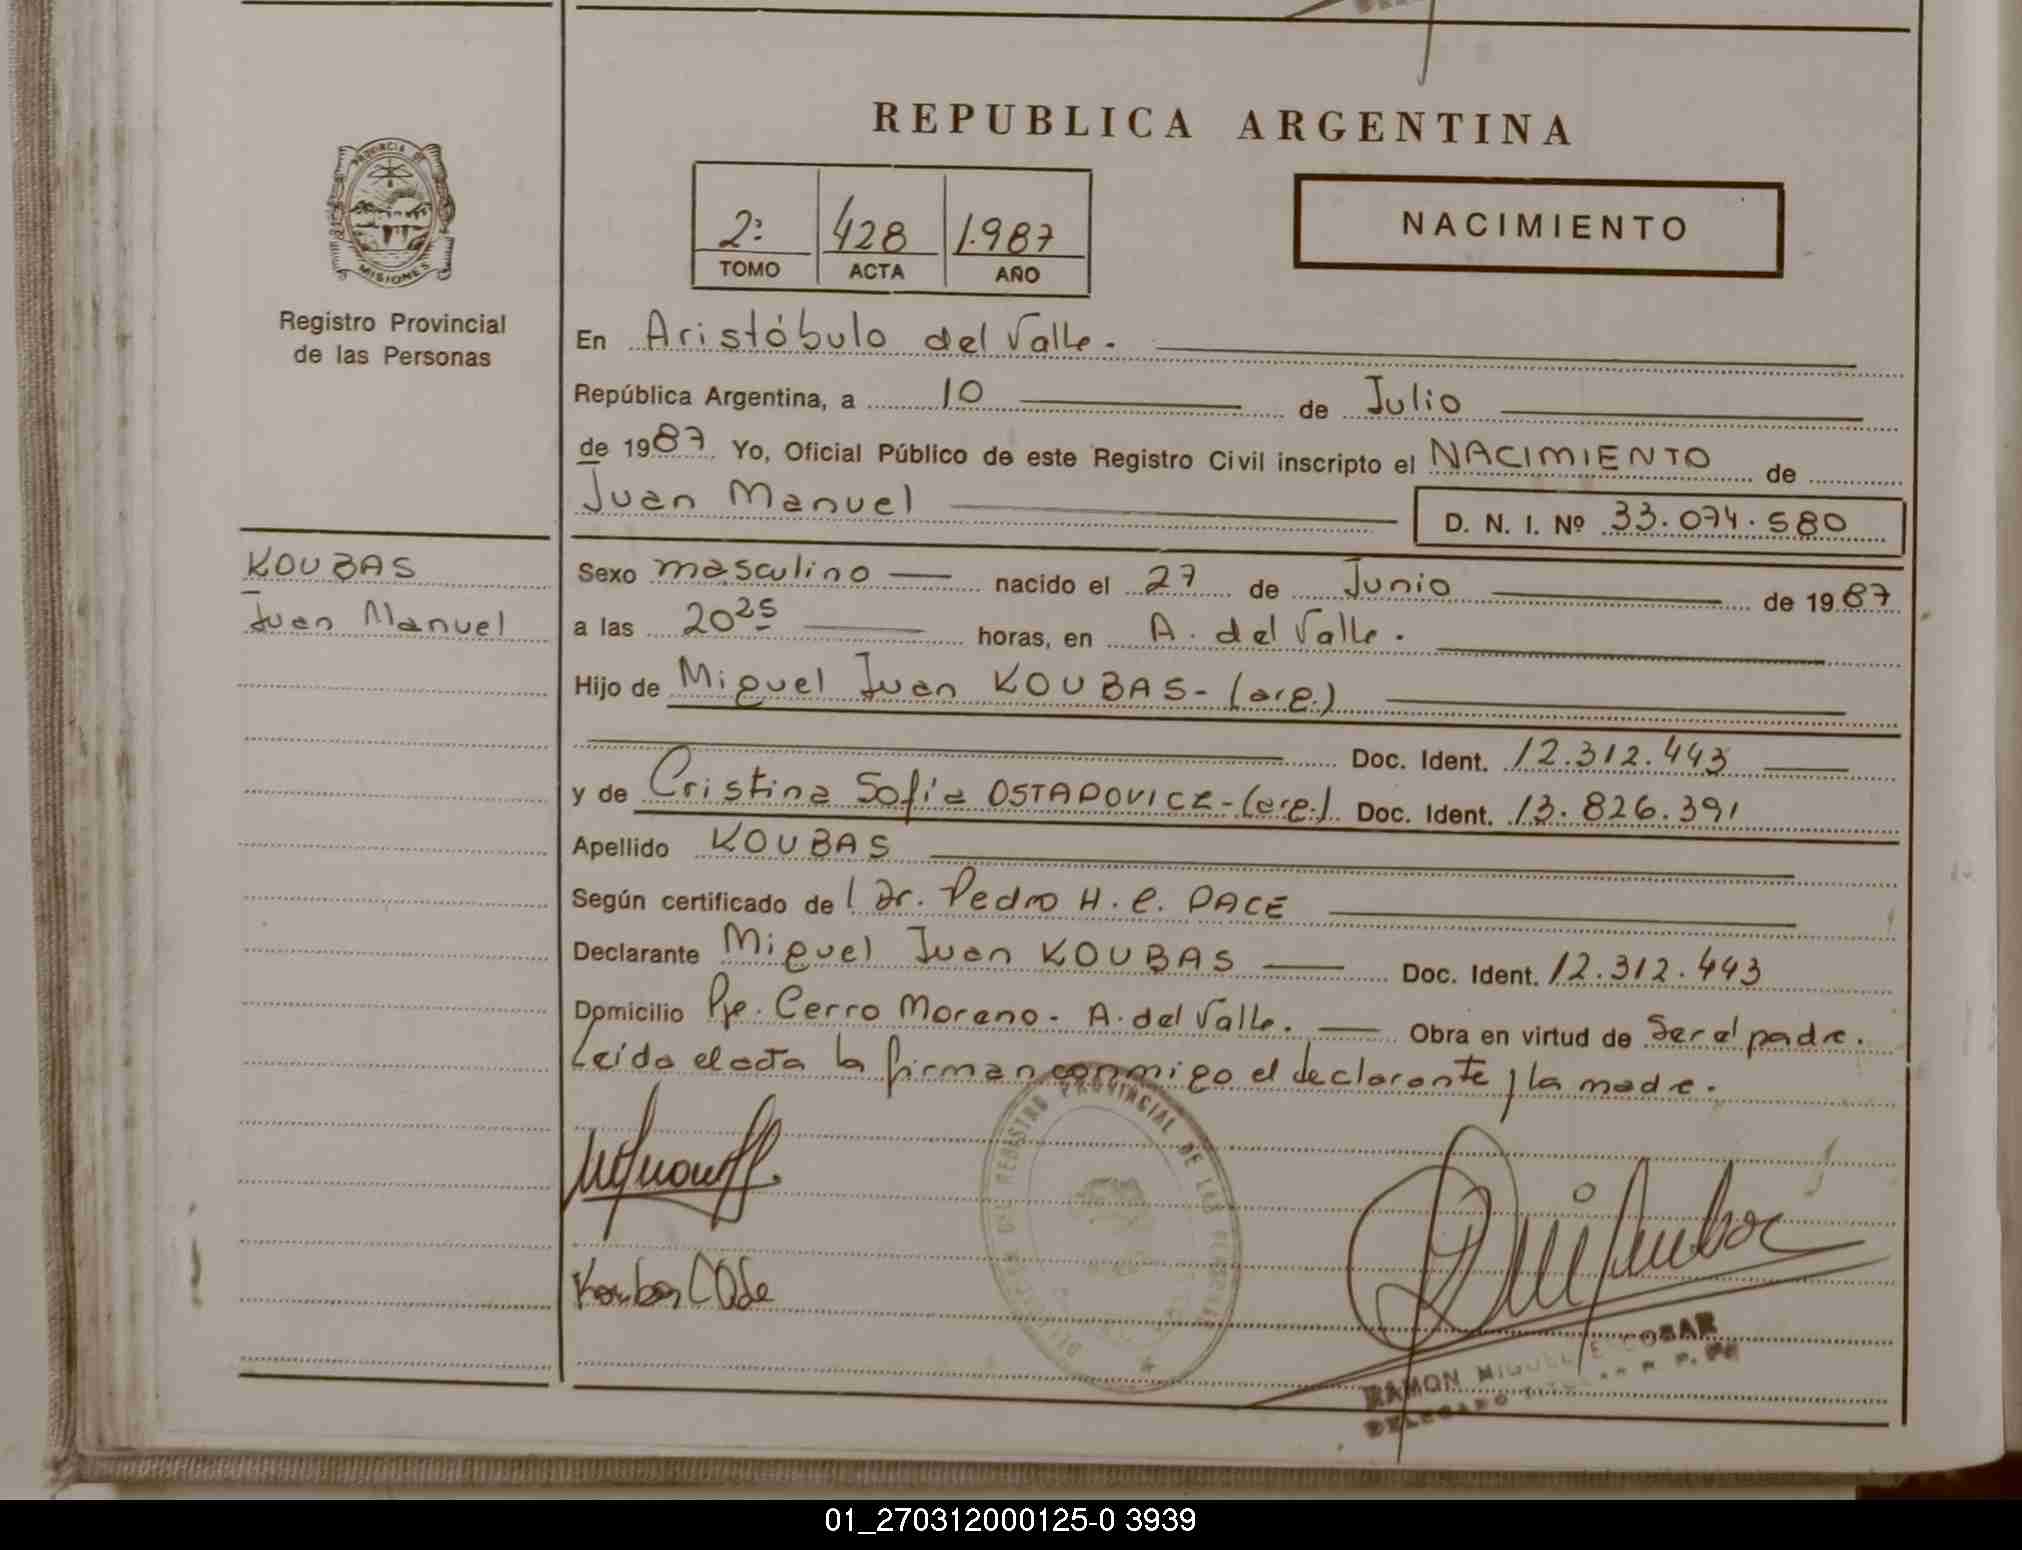 REPUBLICA ARGENTINA
PROVINCIA DE
MISIONES
Registro Provincial
de las Personas
2º 428 1.987
TOMO ACTA AÑO
NACIMIENTO
En Aristóbulo del Valle.
República Argentina, a 10 de Julio
de 1987 Yo, Oficial Público de este Registro Civil inscripto el NACIMIENTO de
Juan Manuel D. N. I. Nº 33.074.580
KOUBAS
Juan Manuel
Sexo masculino nacido el 27 de Junio de 1987
a las 20²⁵ horas, en A. del Valle.
Hijo de Miguel Juan KOUBAS- (arg.)
Doc. Ident. 12.312.443
y de Cristina Sofía OSTAPOVICZ-(arg.) Doc. Ident. 13.826.391
Apellido KOUBAS
Según certificado del Dr. Pedro H. C. PACE
Declarante Miguel Juan KOUBAS Doc. Ident. 12.312.443
Domicilio Pje. Cerro Moreno- A. del Valle. Obra en virtud de Ser el padre.
Leída el acta la firman conmigo el declarante y la madre.
REGISTRO PROVINCIAL DE LAS PERSONAS
Koubas
RAMON MIGUEL ESCOBAR
DELEGADO
01_270312000125-0 3939